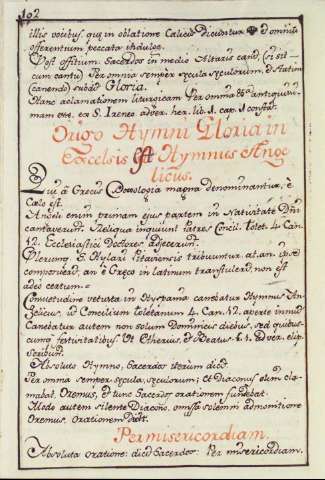 102
illis vocibus, quæ in oblatione Calicis dicuntur ✠ Domine
offerentium peccata indulge.
Post offitium Sacerdos in medio Altaris canit, (si sit
cum cantu) Per omnia semper secula seculorum, & statim
(canendo) subdit Gloria.
Hanc aclamationem liturgicam Per omnia &a antiquissi-
mam esse, ex S. Ireneo adver. her. lib. 1. cap. 1 constat.
Origo Hymni Gloria in
Excelsis est Hymnus Ange
licus.
Qui à Grecis Doxologia magna denominantur, è
Cœlo est.
Angeli enim primam ejus partem in Nativitate Dñi
cantaverunt. Reliqua inquiunt Patres Concii. Tolet. 4 Can.
12. Ecclesiastici Doctores adjecerunt.
Plerunq S. Hylari Pitaviensis tribuuntur at. an. ipse
composuerit, an è Greco in latinum transtulerit, non est
adeo certum.
Consuetudine vetusta in Hyspania canebatur Hymnus An-
gelicus, ut Concilium toletanum 4. Can. 12. aperte innuit
Canebatur autem non solum Dominicis diebus, sed quibus-
cumq festivitatibus Ut Etherius, & Beatus L. 1. adver. elip.
scribunt.
Absoluto Hymno, Sacerdos iterum dicit
Per omnia semper secula, seculorum; et Diaconus olim cla-
mabat. Oremus, & tunc Sacerdos orationem fundebat.
Modo autem silente Diacono, omissa solemni admonitione
Oremus, orationem
Per misericordiam.
Absoluta oratione: dicit Sacerdos: Per misericordiam.